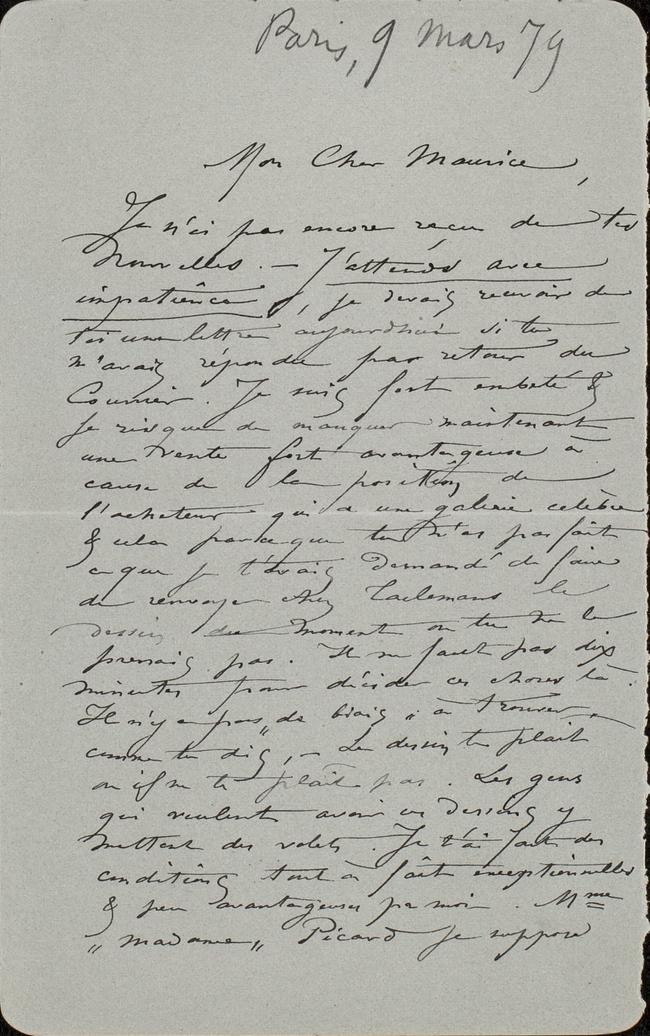 Paris, 9 Mars 79
Mon Cher Maurice,
Je n'ai pas encore reçu de tes
nouvelles. — J'attends avec
impatience, je devais recevoir de
toi une lettre aujourdhui si tu
m'avais répondu par retour du
Courrier. Je suis fort embêté &
je risque de manquer maintenant
une vente fort avantageuse à
cause de la position de
l'acheteur qui a une galerie celèbre
& cela parceque tu n'as pas fait
ce que je t'avais demandé de faire
de renvoyer chez Taelemans le
dessin du moment où tu ne le
prenais pas. Il ne faut pas dix
minutes pour décider ces choses là.
Il n'y a pas "de biais" à trouver
comme tu dis, — Le dessin te plait
ou il ne te plait pas. Les gens
qui veulent avoir ces dessins y
mettent des volets. Je t'ai fait des
conditions tout à fait exceptionnelles
& peu avantageuses pr moi. Mme
"madame" Picard je suppose